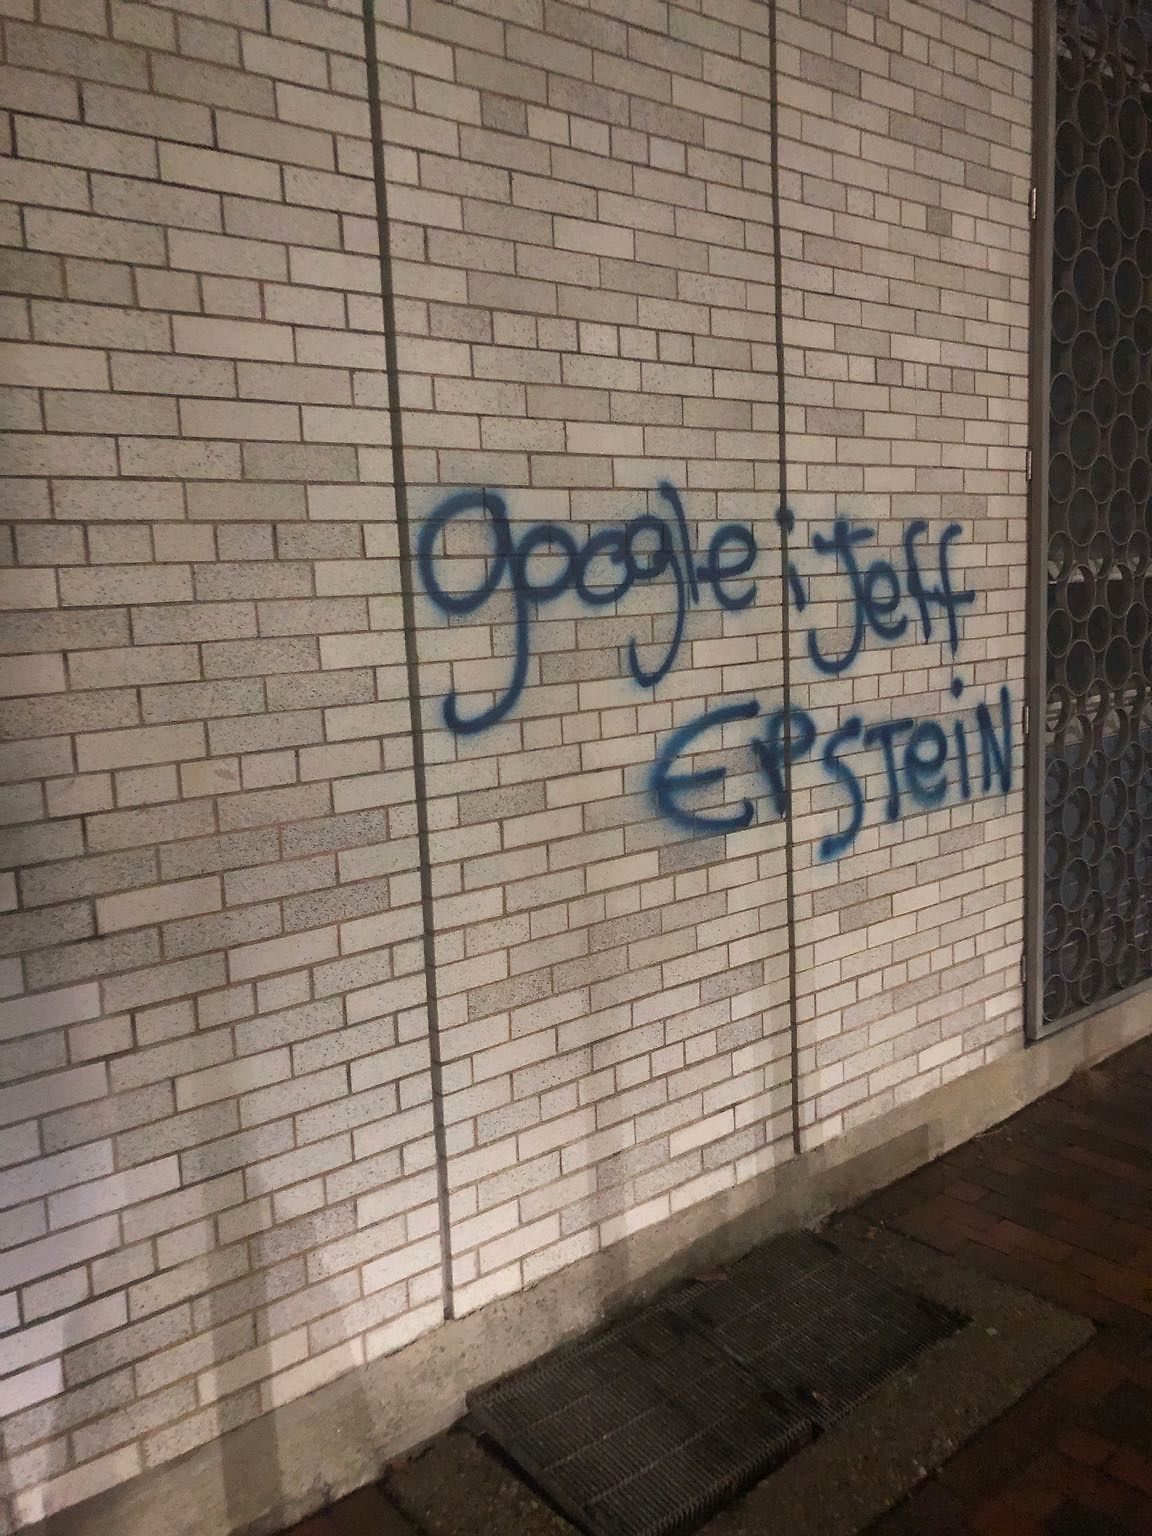 google: Jeff
EPSTEIN